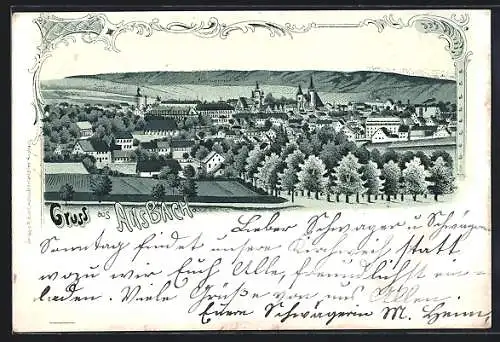 Gruss aus ANSBACH.
Lieber Schwager u Schwägerin
Sonntag findet unsere Kirchweih statt,
wozu wir Euch Alle, freundlichst ein-
laden. Viele Grüße von uns Allen.
Euere Schwägerin M.